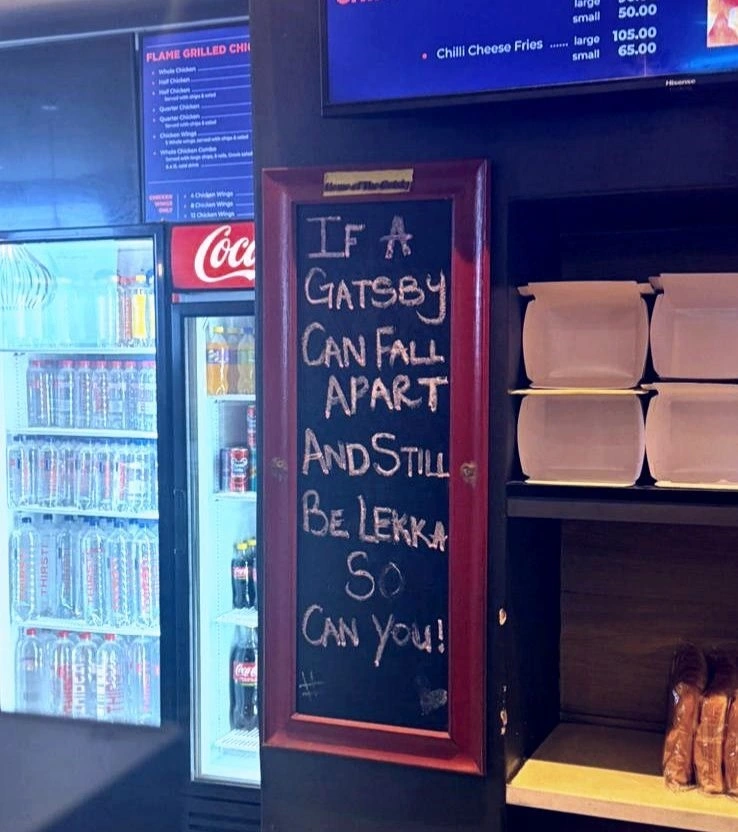 large
small 50.00
• Chilli Cheese Fries ...... large 105.00
small 65.00
Hisense
FLAME GRILLED CHIC
• Whole Chicken
• Half Chicken
• Half Chicken
Served with chips & salad
• Quarter Chicken
• Quarter Chicken
Served with chips & salad
• Chicken Wings
• Whole Chicken Combo
CHICKEN WINGS ONLY
• 4 Chicken Wings
• 8 Chicken Wings
• 12 Chicken Wings
Coca
Home of The Gatsby
IF A
GATSBY
CAN FALL
APART
AND STILL
BE LEKKA
SO
CAN YOU!
#
THIRSTI
Coca